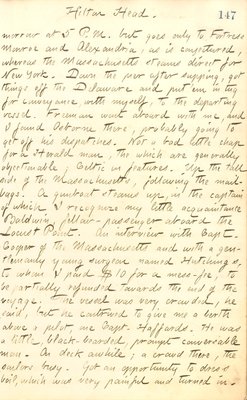 Hilton Head.
147
morrow at 5 P.M. but goes only to Fortress
Monroe and Alexandria, as is conjectured,
whereas the Massachusetts steams direct for
New York. Down the pier after supping, got
things off the Delaware and put em in tug
for conveyance with myself, to the departing
vessel. Freeman went aboard with me, and
I found Osborne there, probably going to
get off his despatches. Not a bad little chap
for a Herald man, the which are generally
objectionable; Celtic in features. Up the tall
side of the Massachusetts, following the mail-
bags. A gunboat steams up, in the captain
of which I recognize my little acquaintance
Baldwin, fellow-passenger aboard the
Locust Point. An interview with Capt.
Cooper of the Massachusetts and with a gen-
tlemanly young surgeon named Hutchings,
to whom I paid $10 for a mess-fee, to
be partially refunded towards the end of the
voyage. The vessel was very crowded, he
said, but he contrived to give me a berth
above a pilot, one Capt. Haffords. He was
a little, black-bearded, prompt conversable
man. On deck awhile; a crowd there, the
sailors busy. Got an opportunity to dress
boil, which was very painful and turned in.